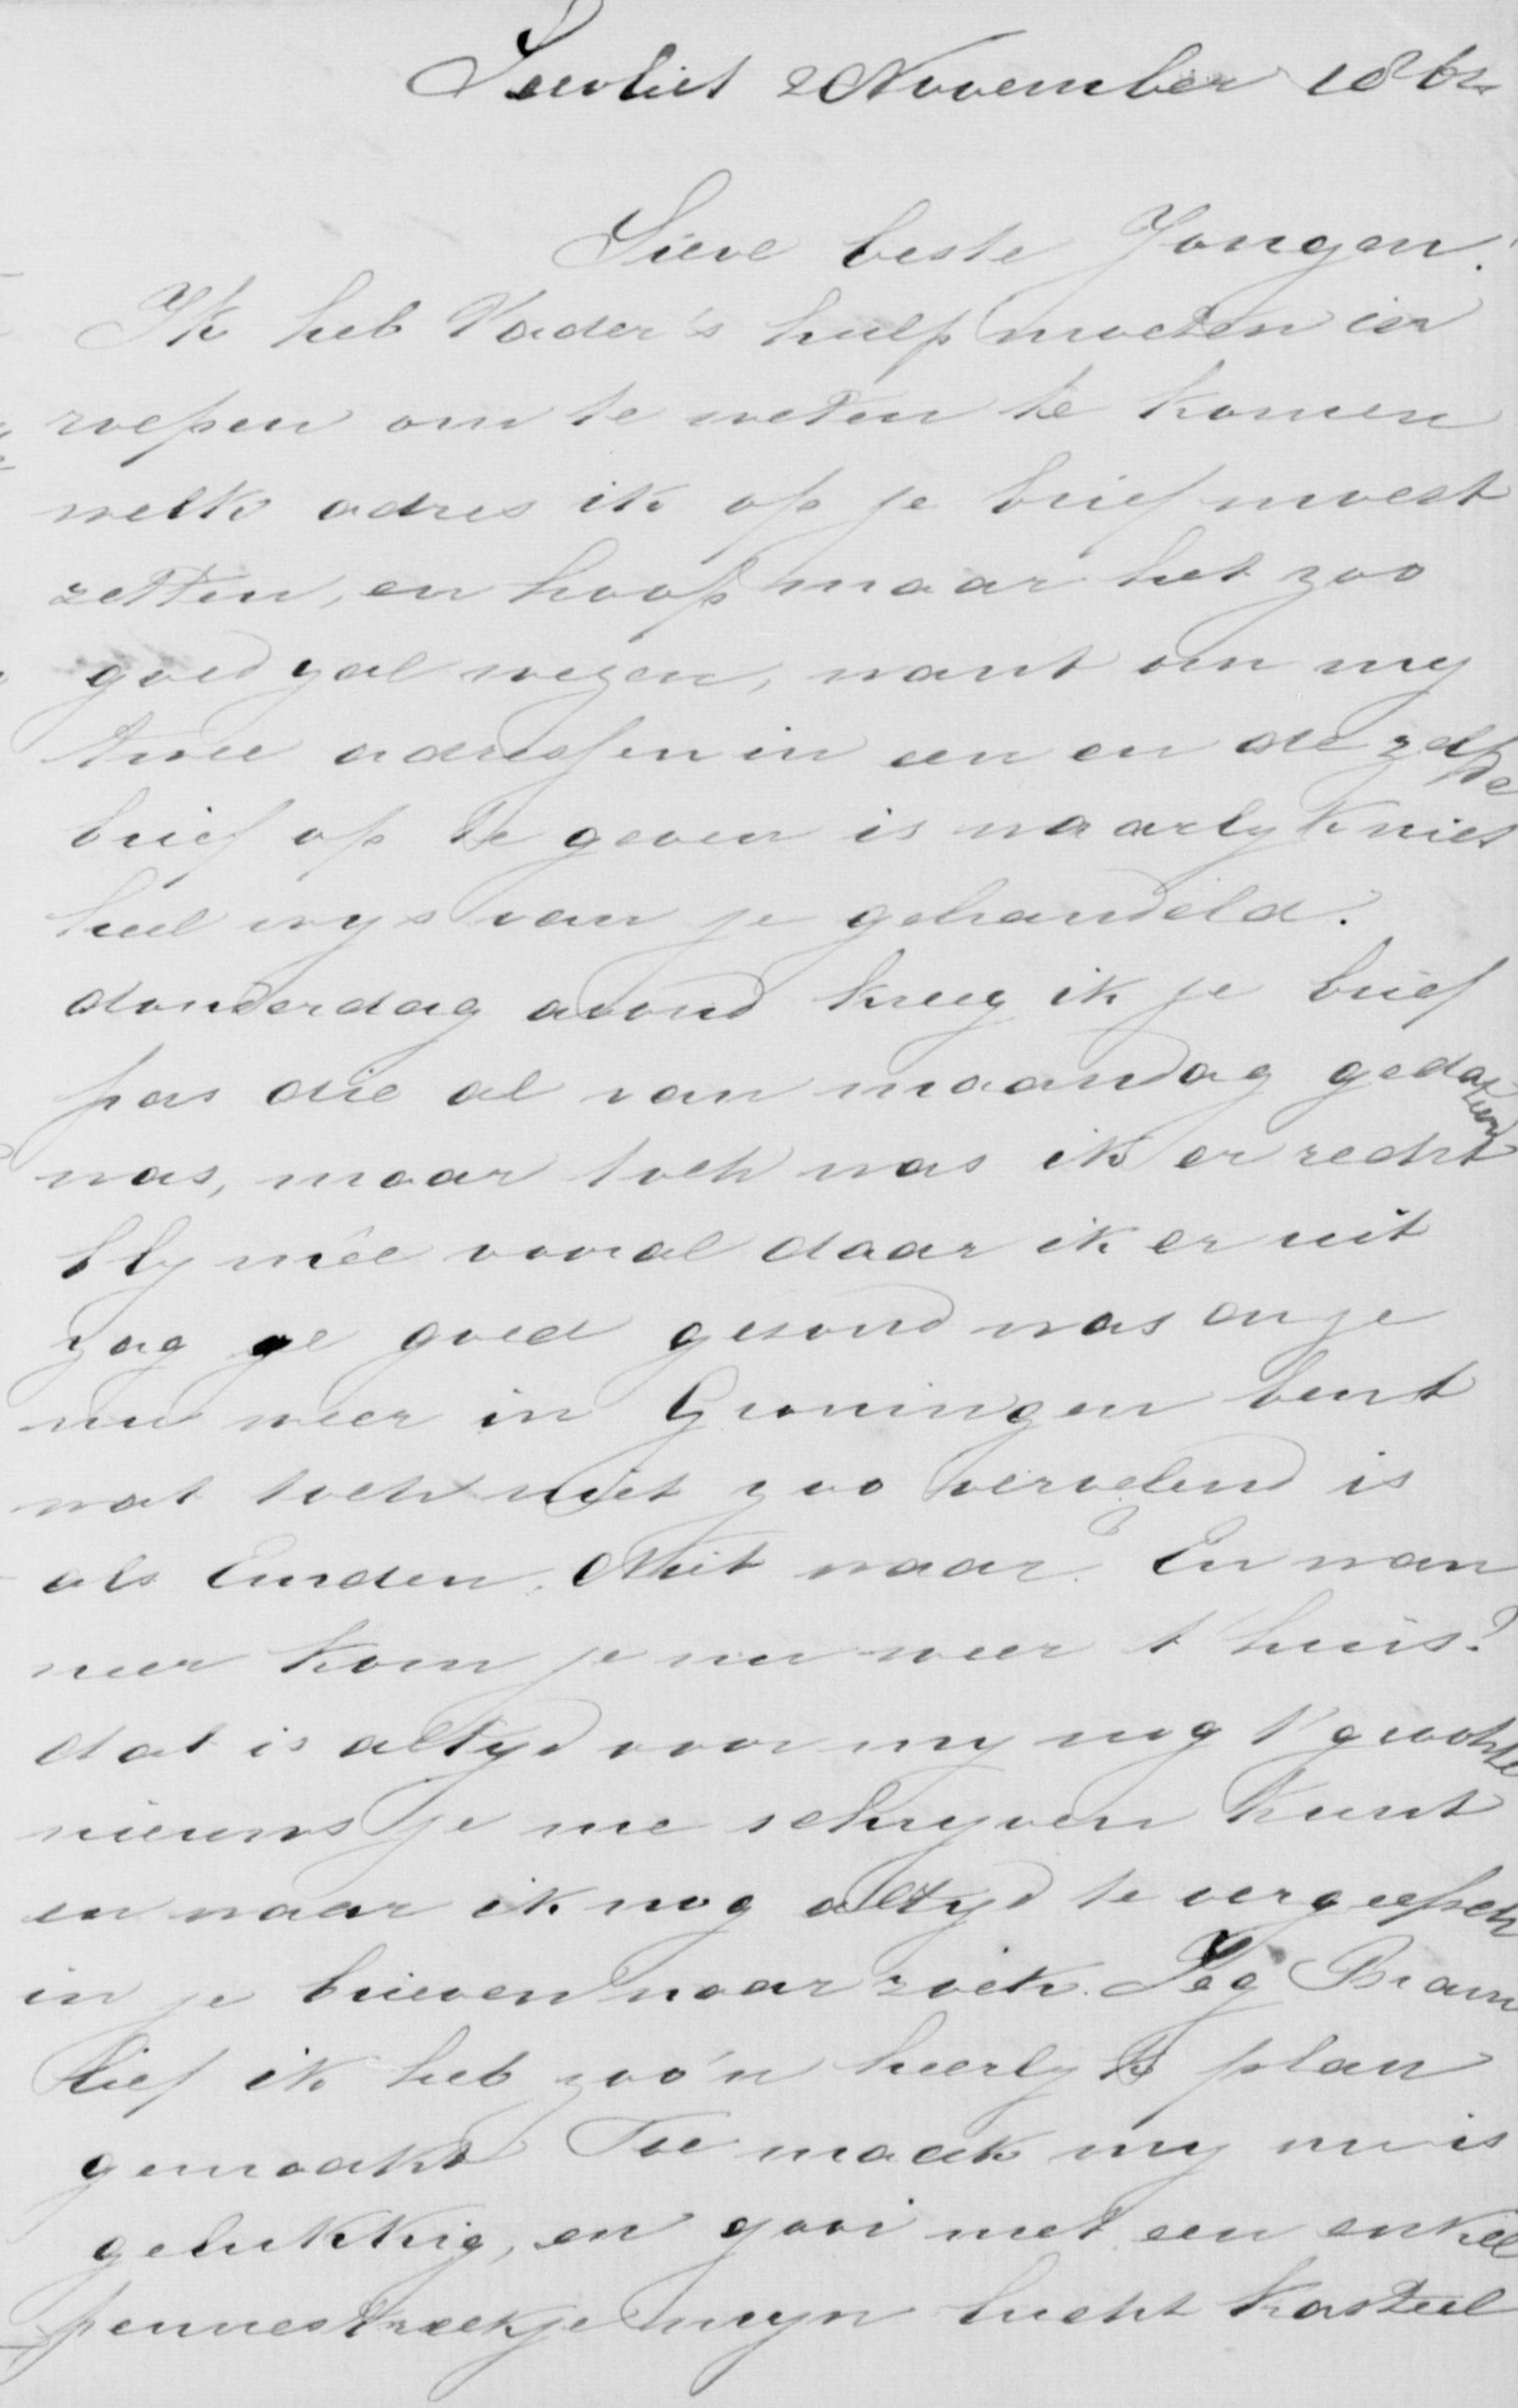 Heenvliet 2 November 1862
Lieve beste Jongen!
Ik heb Vader's hulp moeten in
roepen om te weten te komen
welk adres ik op je brief moest
zetten, en hoop maar het zoo
goed zal wezen, want om my
twee adressen in een en de zelfde
brief op te geven is waarlyk niet
heel wys van je gehandeld.
donderdag avond kreeg ik je brief
pas die al van maandag gedateerd
was, maar toch was ik er recht
bly meê vooral daar ik er uit
zag je goed gesond was en je
nu weer in Groningen bent
wat toch niet zoo vervelend is
als Emden. Niet waar? En wan
neer kom je nu weer t'huis?
dat is altyd voor my nog 't grootste
nieuws je me schryven kunt
en waar ik nog altyd te vergeefsch
in je brieven naar zoek. Zeg Bram
lief ik heb zoo'n heerlyk plan
gemaakt Toe maak my nu is
gelukkig, en gooi met een enkel
pennestreekje myn lucht kasteel